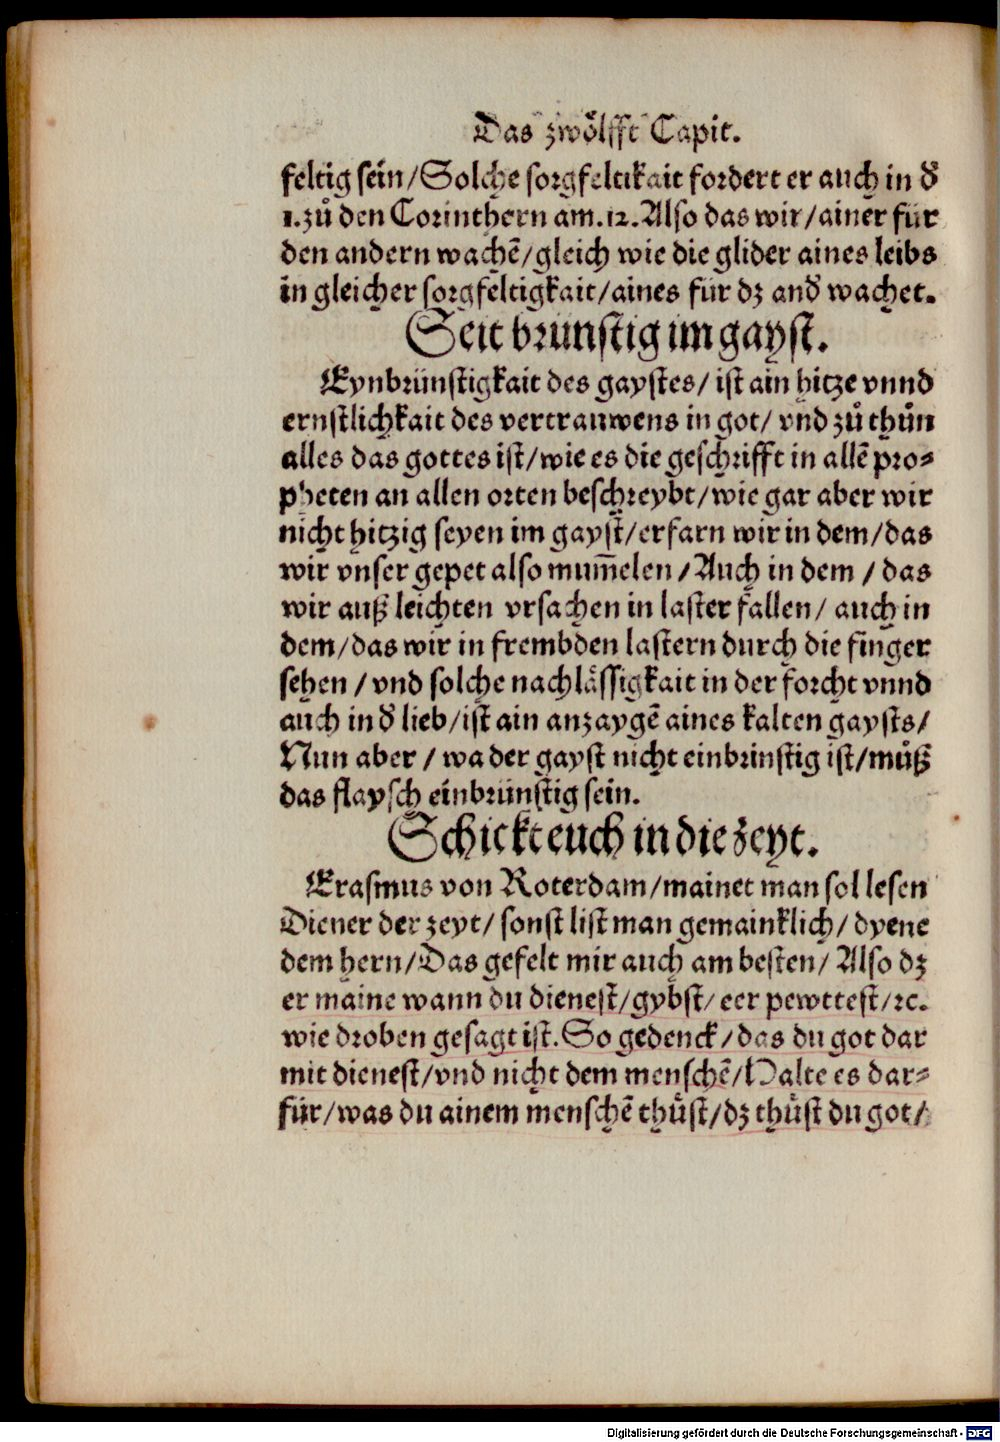 Das zwoͤlfft Capit.
feltig sein/Solche sorgfeltikait fordert er auch in đ
1.zuͦ den Corinthern am.12.Also das wir/ainer für
den andern wachē/gleich wie die glider aines leibs
in gleicher sorgfeltigkait/aines für dz anđ wachet.
Seit brünstig im gayst.
Eynbrünstigkait des gaystes/ ist ain hitze vnnd
ernstlichkait des vertrauwens in got/ vnd zuͦ thuͦn
alles das gottes ist/wie es die geschrifft in allē pro-
pheten an allen orten beschreybt/wie gar aber wir
nicht hitzig seyen im gayst/erfarn wir in dem/das
wir vnser gepet also mum̄elen/Auch in dem / das
wir auß leichten vrsachen in laster fallen/ auch in
dem/das wir in frembden lastern durch die finger
sehen / vnd solche nachlässigkait in der forcht vnnd
auch in đ lieb/ist ain anzaygē aines kalten gaysts/
Nun aber / wa der gayst nicht einbrinstig ist/muͦß
das flaysch einbrünstig sein.
Schickt euch in die zeyt.
Erasmus von Roterdam/mainet man sol lesen
Diener der zeyt/ sonst list man gemainklich/ dyene
dem hern/Das gefelt mir auch am besten/ Also dz
er maine wann du dienest/gybst/ eer pewttest/ꝛc.
wie droben gesagt ist.So gedenck/das du got dar
mit dienest/vnd nicht dem menschē/Halte es dar-
für/was du ainem menschē thuͤst/dz thuͤst du got/
Digitalisierung gefördert durch die Deutsche Forschungsgemeinschaft - DFG